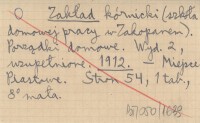 O Zakład kórnicki (szkoła
domowej pracy w Zakopanem).
Porządki domowe. Wyd. 2,
uzupełnione. 1912. Miejsce
Piastowe. Stron 54, 1 tab.,
8° mała.